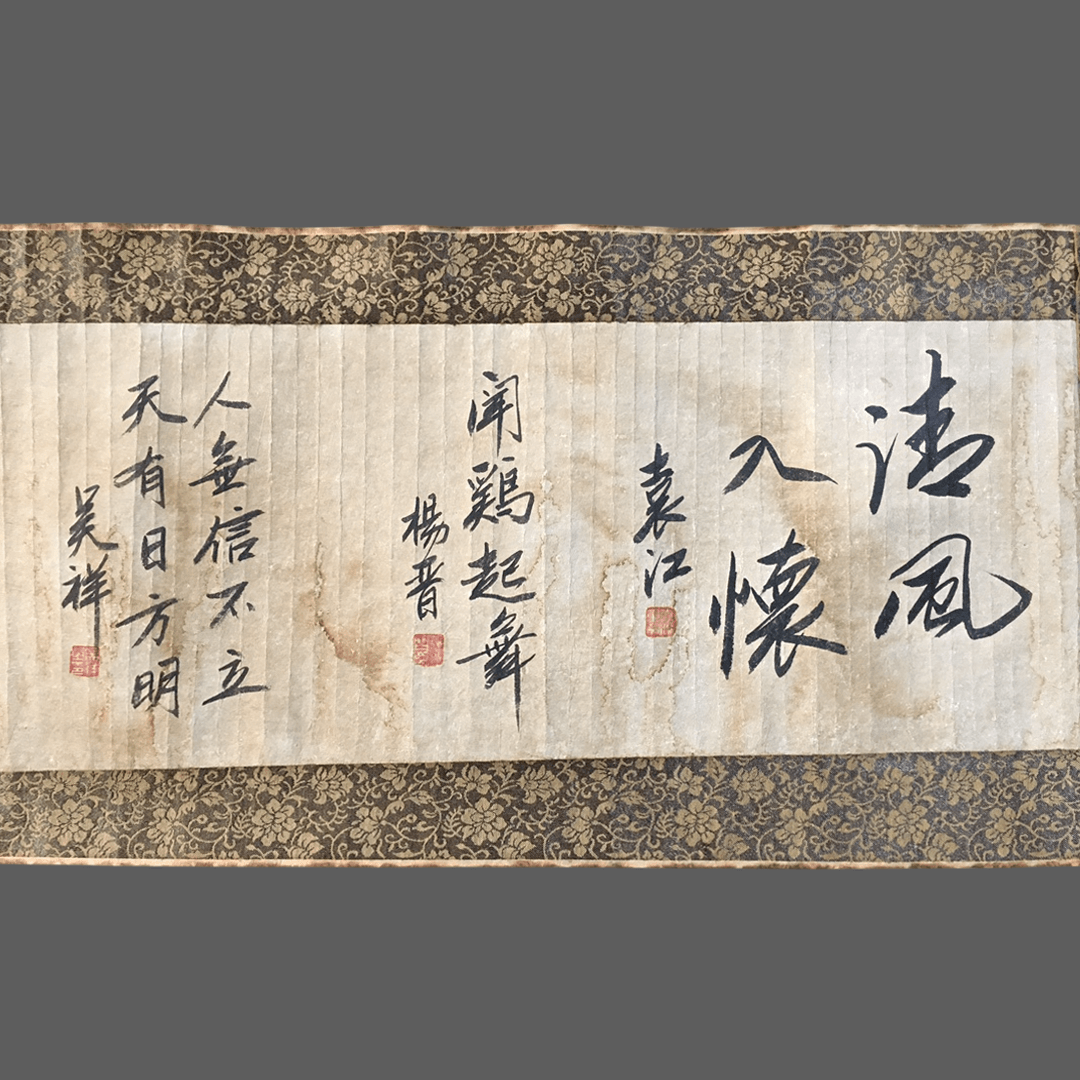 清風
入懷
袁江
闻鷄起舞
楊晋
人無信不立
天有日方明
吴祥